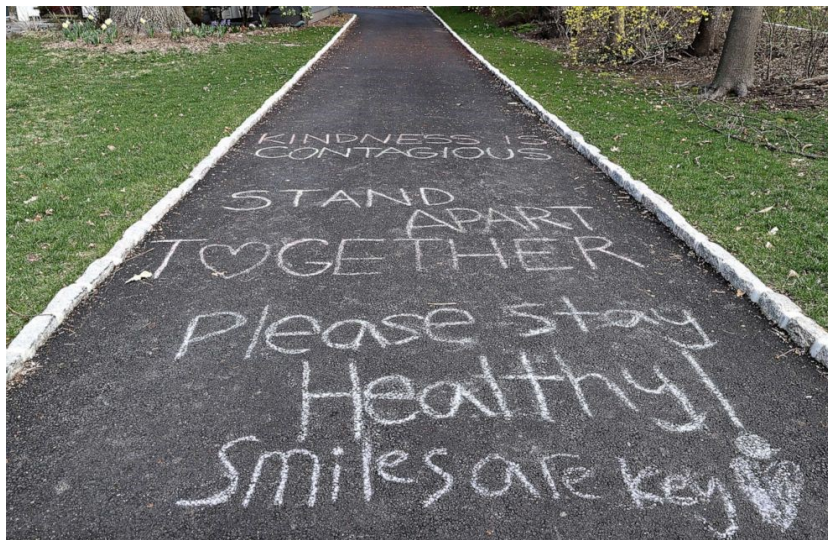 KINDNESS IS
CONTAGIOUS
STAND
APART
T♡GETHER
Please stay
Healthy!
Smiles are key